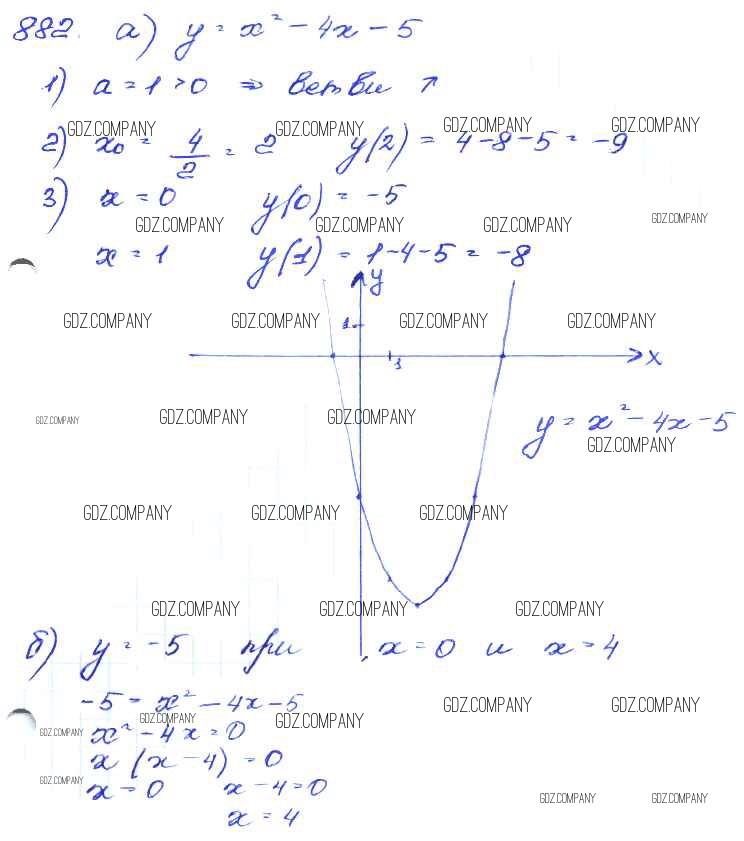 882. а) y = x² - 4x - 5
1) a = 1 > 0 ⇒ ветви ↑
2) x₀ = 4/2 = 2 y(2) = 4 - 8 - 5 = -9
3) x = 0 y(0) = -5
x = 1 y(1) = 1 - 4 - 5 = -8
y
1
x
1
y = x² - 4x - 5
б) y = -5 при x = 0 и x = 4
-5 = x² - 4x - 5
x² - 4x = 0
x (x - 4) = 0
x = 0 x - 4 = 0
x = 4
GDZ.COMPANY GDZ.COMPANY GDZ.COMPANY GDZ.COMPANY
GDZ.COMPANY GDZ.COMPANY GDZ.COMPANY GDZ.COMPANY
GDZ.COMPANY GDZ.COMPANY GDZ.COMPANY GDZ.COMPANY
GDZ.COMPANY GDZ.COMPANY GDZ.COMPANY GDZ.COMPANY
GDZ.COMPANY GDZ.COMPANY GDZ.COMPANY
GDZ.COMPANY GDZ.COMPANY GDZ.COMPANY
GDZ.COMPANY GDZ.COMPANY GDZ.COMPANY GDZ.COMPANY GDZ.COMPANY
GDZ.COMPANY GDZ.COMPANY GDZ.COMPANY